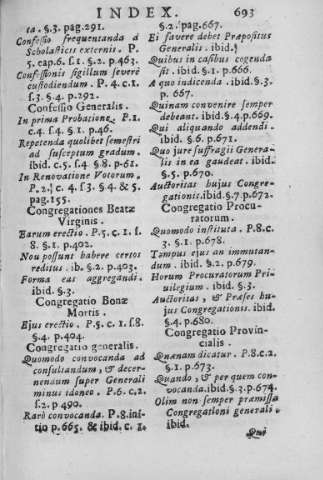 INDEX. 693
ta. §.3. pag.291.
Confessio frequentanda à
Scholasticis externis. P.
5. cap.6. ſ.1. §.2. p.463.
Confessionis sigillum severè
custodiendum. P. 4. c.1.
ſ.3. §.4. p.292.
Confessio Generalis.
In prima Probatione. P.1.
c.4. ſ.4. §.1. p.46.
Repetenda quolibet semestri
ad susceptum gradum.
ibid. c.5. ſ.4. §.8. p.61.
In Renovatione Votorum.
P.2. c. 4. ſ.3. §.4. & 5.
pag.155.
Congregationes Beatæ
Virginis.
Earum erectio. P.5. c.1. ſ.
8. §.1. p.402.
Non possunt habere certos
reditus. ib. §.2. p.403.
Forma eas aggregandi.
ibid. §.3.
Congregatio Bonæ
Mortis.
Ejus erectio. P.5. c.1. ſ.8.
§.4. p.404.
Congregatio generalis.
Quomodo convocanda ad
consultandum, & decer-
nendum super Generali
minus idoneo. P.6. c.2.
ſ.2. p 490.
Rarò convocanda. P.8.ini-
tio p.665. & ibid. c. 1.
§.2. pag.667.
Ei favere debet Præpositus
Generalis. ibid.
Quibus in casibus cogenda
sit. ibid. §.1. p.666.
A quo judicenda. ibid.§.3.
p. 667.
Quinam convenire semper
debeant. ibid.§.4.p.669.
Qui aliquando addendi.
ibid. §.6. p.671.
Quo jure suffragii Genera-
lis in ea gaudeat. ibid.
§.5. p.670.
Auctoritas hujus Congre-
gationis.ibid.§.7.p.672.
Congregatio Procu-
ratorum.
Quomodo instituta. P.8.c.
3. §.1. p.678.
Tempus ejus an immutan-
dum. ibid. §.2. p.679.
Horum Procuratorum Pri-
vilegium. ibid. §.3.
Auctoritas, & Præses hu-
jus Congregationis. ibid.
§.4. p.680.
Congregatio Provin-
cialis.
Quænam dicatur. P.8.c.2.
§.1. p.673.
Quando, & per quem con-
vocanda.ibid.§.3.p.674.
Olim non semper præmissa
Congregationi generali.
ibid.
Qui